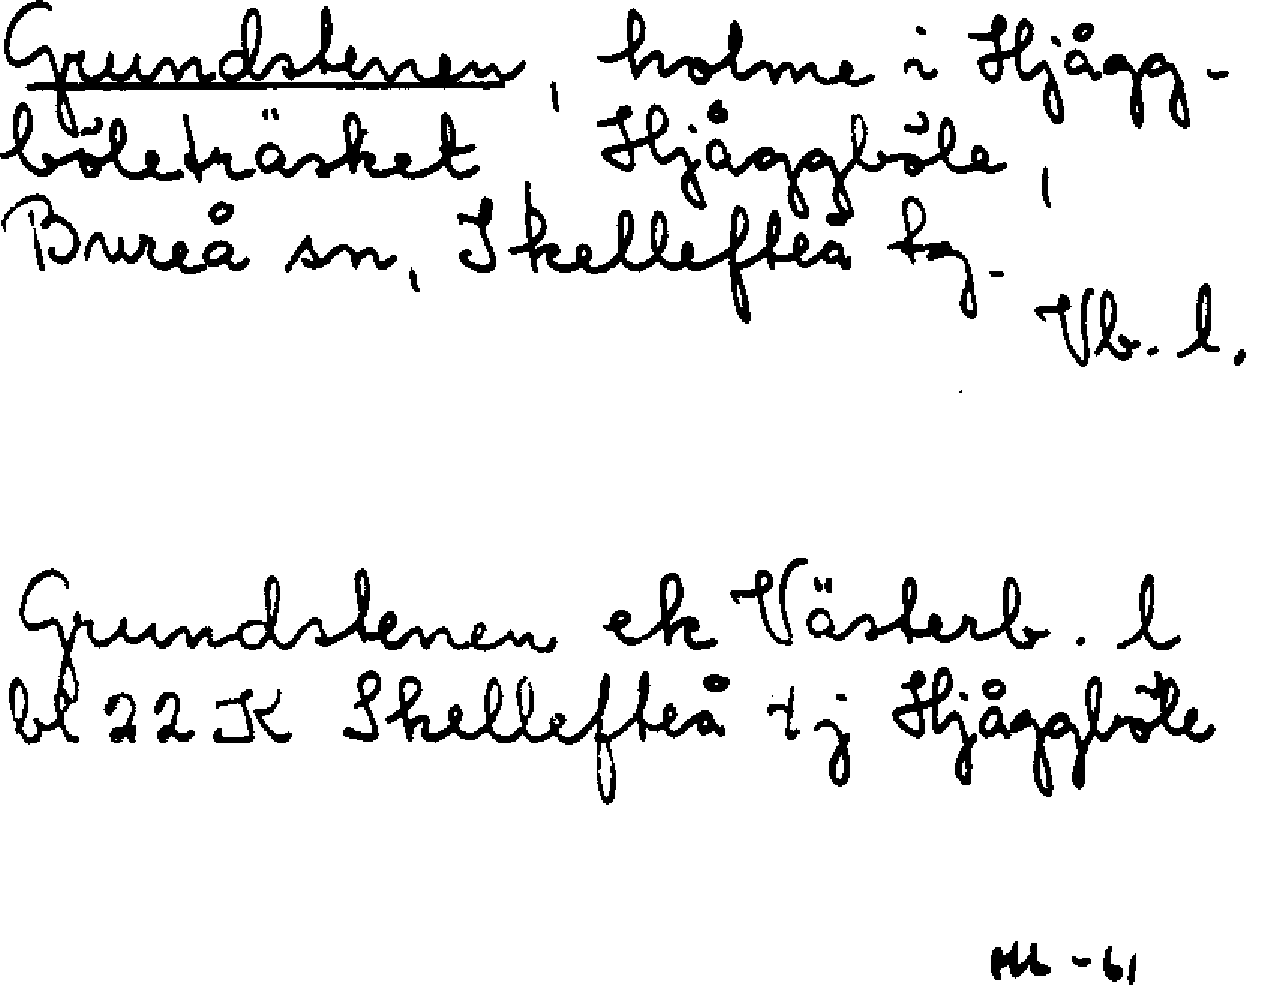 Grundstenen, holme i Hjågg-
böleträsket, Hjåggböle,
Bureå sn, Skellefteå tg.
Vb. l.
Grundstenen ek Västerb. l
bl 22 K Skellefteå tj Hjåggböle
-61